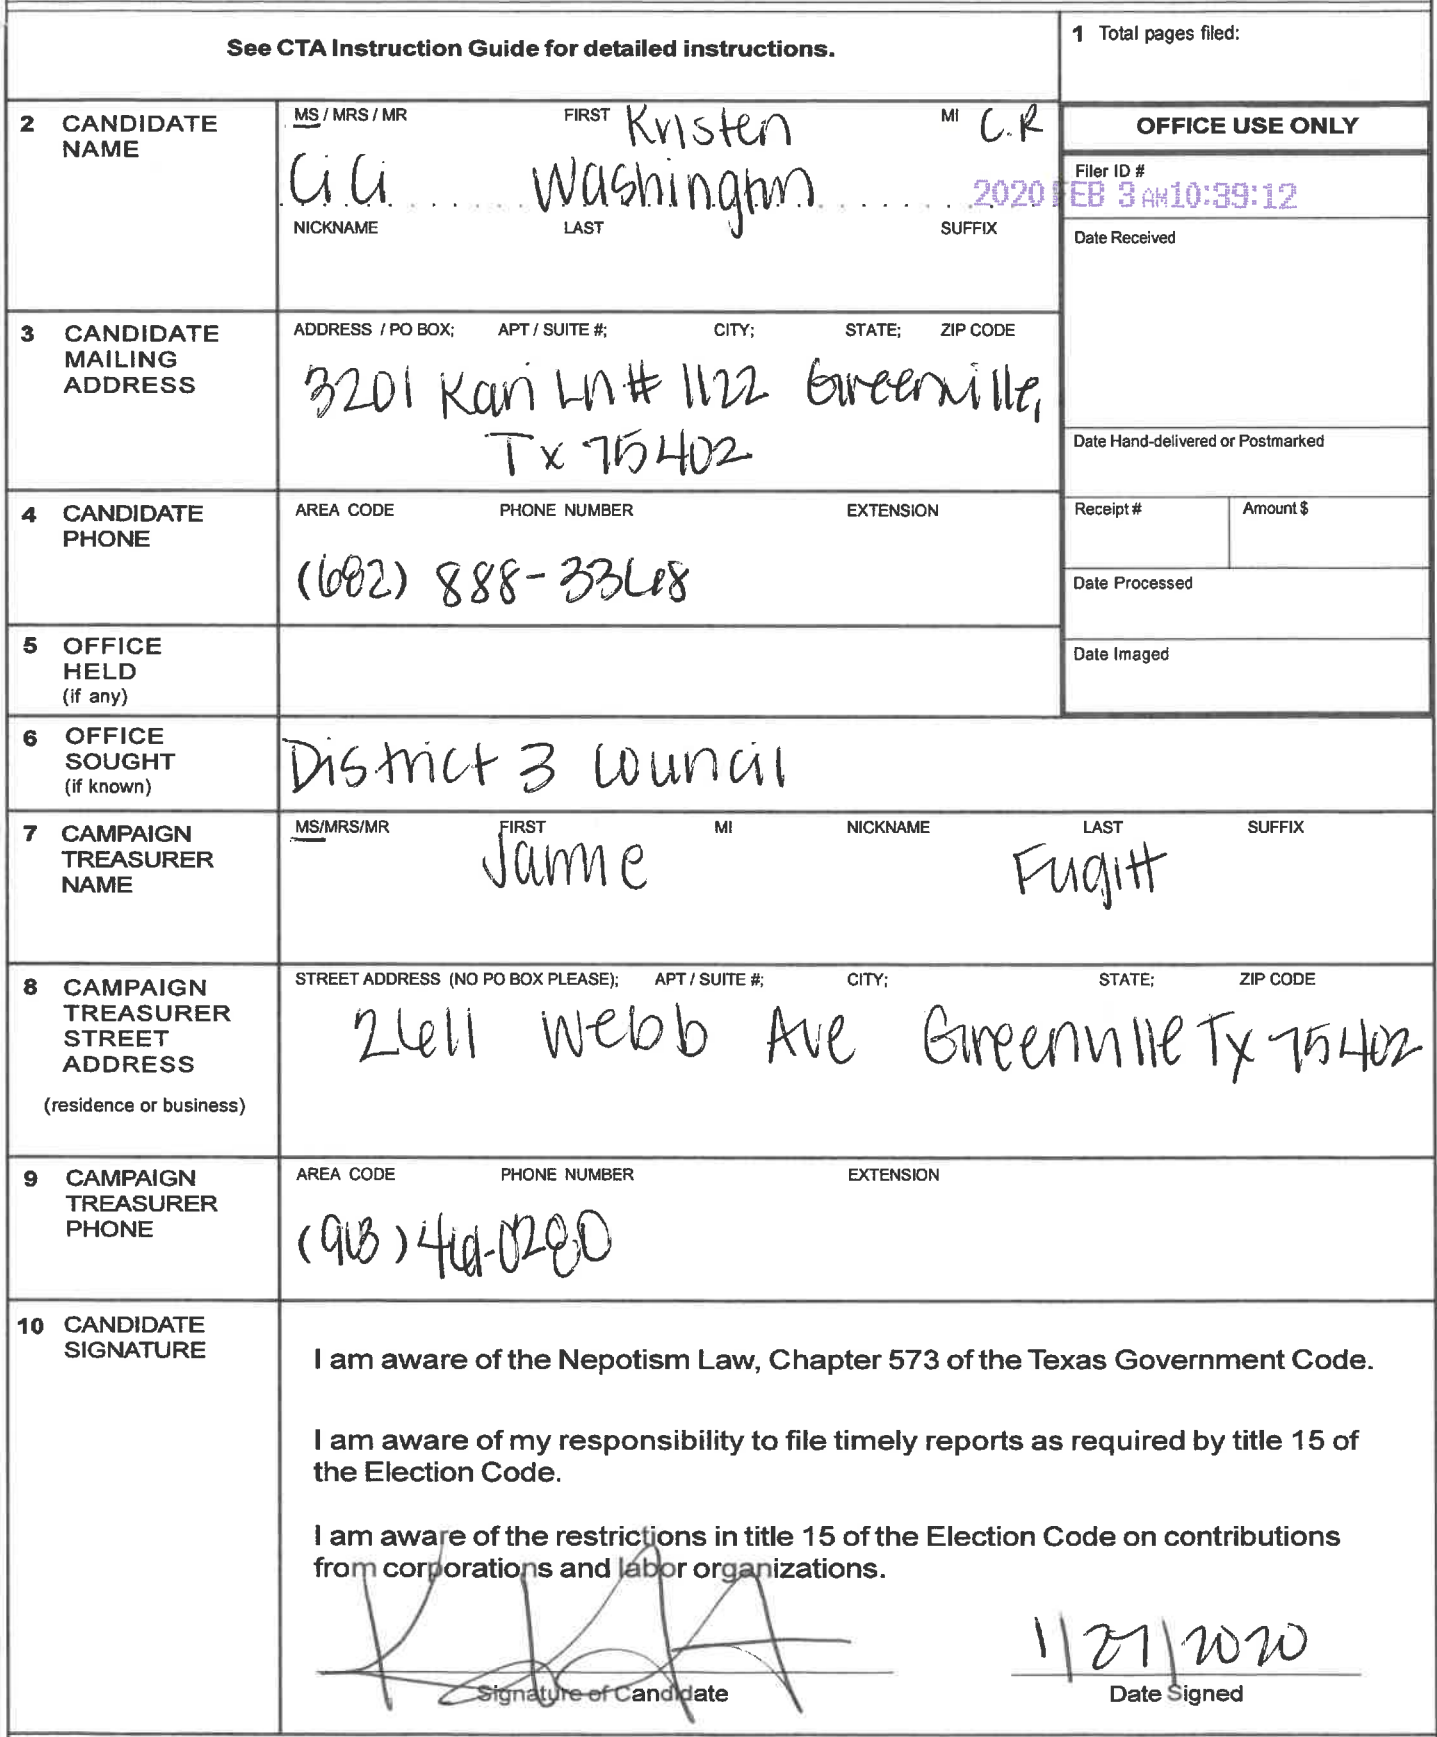 See CTA Instruction Guide for detailed instructions.
1 Total pages filed:
2 CANDIDATE NAME
MS / MRS / MR FIRST Kristen MI C.R
CiCi Washington
NICKNAME LAST SUFFIX
OFFICE USE ONLY
Filer ID #
2020 FEB 3 AM 10:39:12
Date Received
3 CANDIDATE MAILING ADDRESS
ADDRESS / PO BOX; APT / SUITE #; CITY; STATE; ZIP CODE
3201 Kari Ln # 1122 Greenville,
Tx 75402
Date Hand-delivered or Postmarked
4 CANDIDATE PHONE
AREA CODE PHONE NUMBER EXTENSION
(682) 888-3368
Receipt # Amount $
Date Processed
5 OFFICE HELD (if any)
Date Imaged
6 OFFICE SOUGHT (if known)
District 3 Council
7 CAMPAIGN TREASURER NAME
MS/MRS/MR FIRST MI NICKNAME LAST SUFFIX
Jamie Fugitt
8 CAMPAIGN TREASURER STREET ADDRESS (residence or business)
STREET ADDRESS (NO PO BOX PLEASE); APT / SUITE #; CITY; STATE; ZIP CODE
2611 Webb Ave Greenville Tx 75402
9 CAMPAIGN TREASURER PHONE
AREA CODE PHONE NUMBER EXTENSION
10 CANDIDATE SIGNATURE
I am aware of the Nepotism Law, Chapter 573 of the Texas Government Code.
I am aware of my responsibility to file timely reports as required by title 15 of
the Election Code.
I am aware of the restrictions in title 15 of the Election Code on contributions
from corporations and labor organizations.
1/27/2020
Signature of Candidate Date Signed